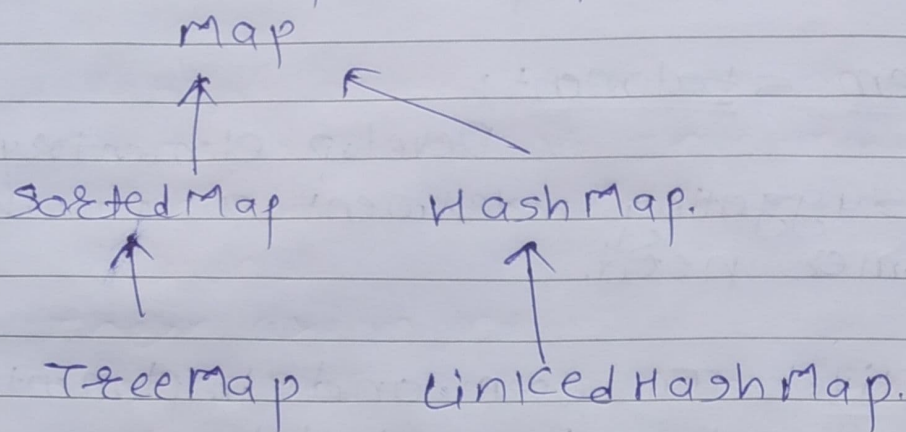 Map
SortedMap HashMap.
TreeMap LinkedHashMap.